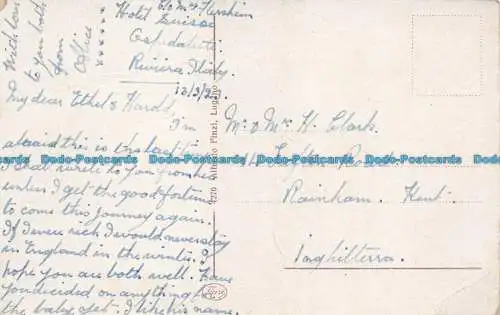 With love
to you both
from
Office
x x x x x
C/o Mrs Hershim
Hotel Suisse
Ospedaletti
Riviera Italy.
12/3/23
My dear Ethel & Harold,
I'm
afraid this is the last
I shall write to you from here
unless I get the good fortune
to come this journey again.
If I were rich I would never stay
in England in the winter. I
hope you are both well. Have
you decided on anything for
the baby yet. I like his name.
7276 Alfredo Finzi, Lugano
Mr & Mrs H. Clark.
Rainham. Kent.
Inghilterra.
Dodo-Postcards Dodo-Postcards Dodo-Postcards Dodo-Postcards Dodo-Postcards